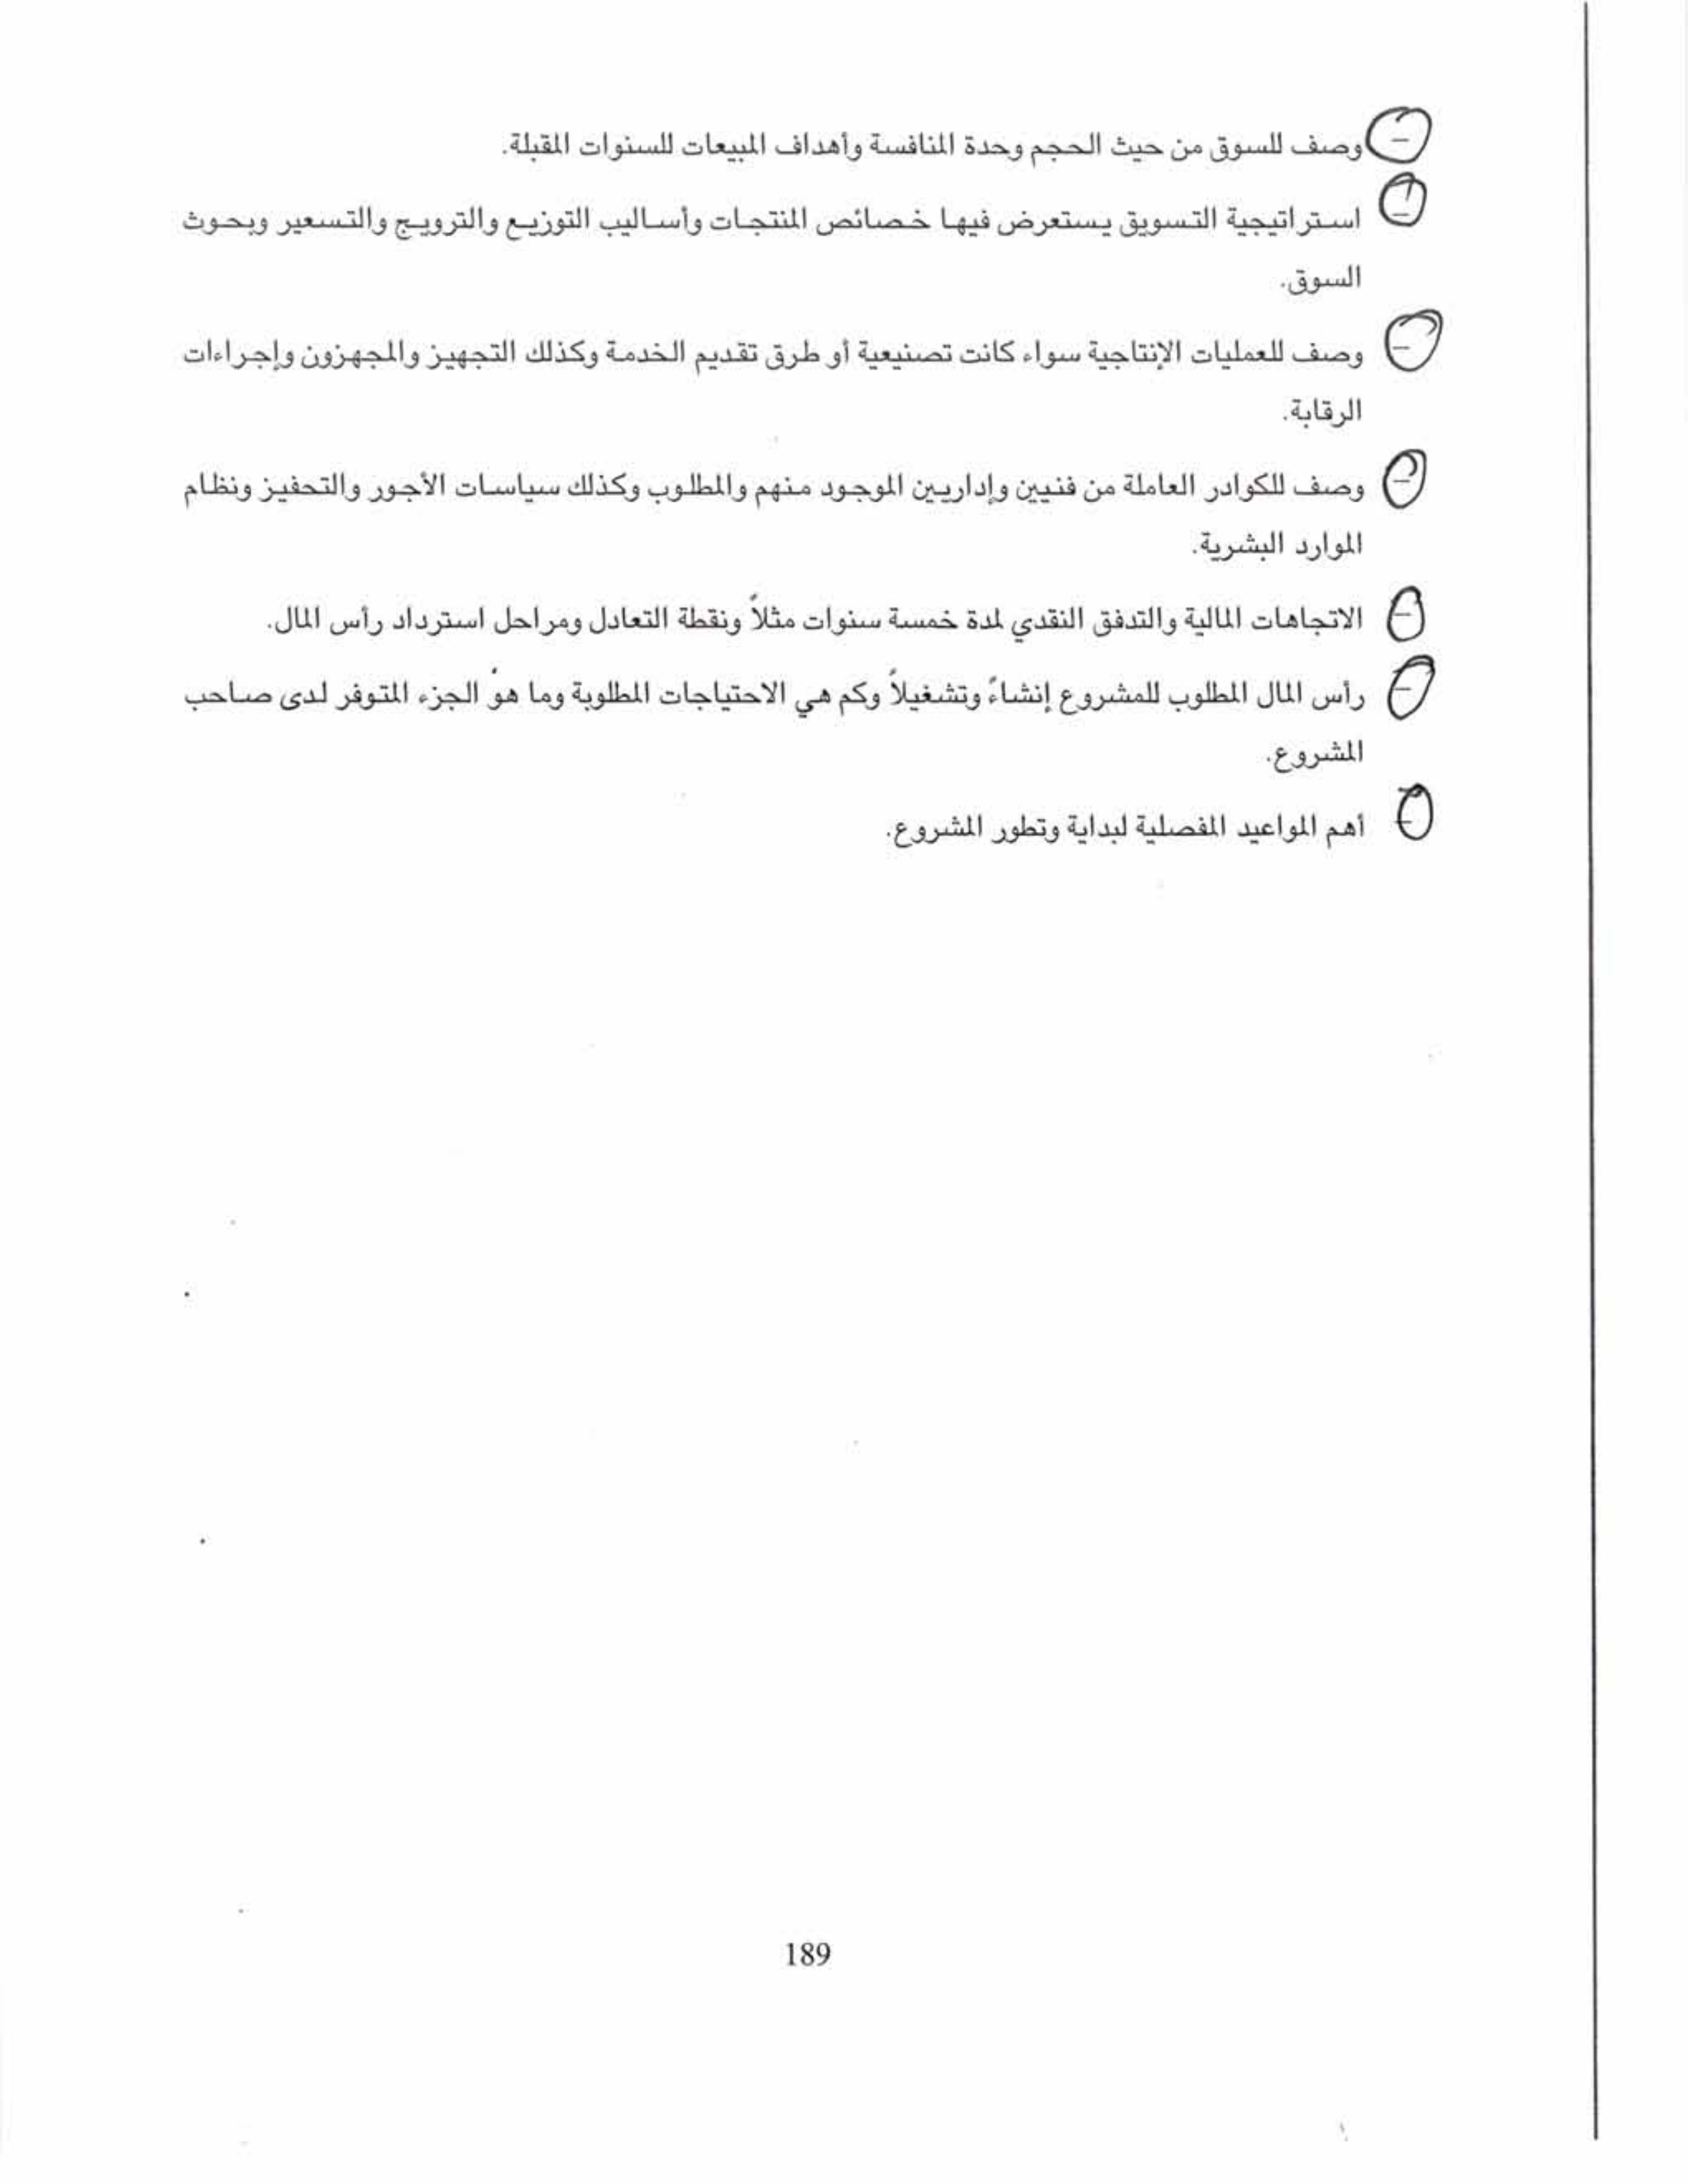 - وصف للسوق من حيث الحجم وحدة المنافسة وأهداف المبيعات للسنوات المقبلة.
- استراتيجية التسويق يستعرض فيها خصائص المنتجات وأساليب التوزيع والترويج والتسعير وبحوث
السوق.
- وصف للعمليات الإنتاجية سواء كانت تصنيعية أو طرق تقديم الخدمة وكذلك التجهيز والمجهزون وإجراءات
الرقابة.
- وصف للكوادر العاملة من فنيين وإداريين الموجود منهم والمطلوب وكذلك سياسات الأجور والتحفيز ونظام
الموارد البشرية.
- الاتجاهات المالية والتدفق النقدي لمدة خمسة سنوات مثلاً ونقطة التعادل ومراحل استرداد رأس المال.
- رأس المال المطلوب للمشروع إنشاءً وتشغيلاً وكم هي الاحتياجات المطلوبة وما هو الجزء المتوفر لدى صاحب
المشروع.
- أهم المواعيد المفصلية لبداية وتطور المشروع.
189